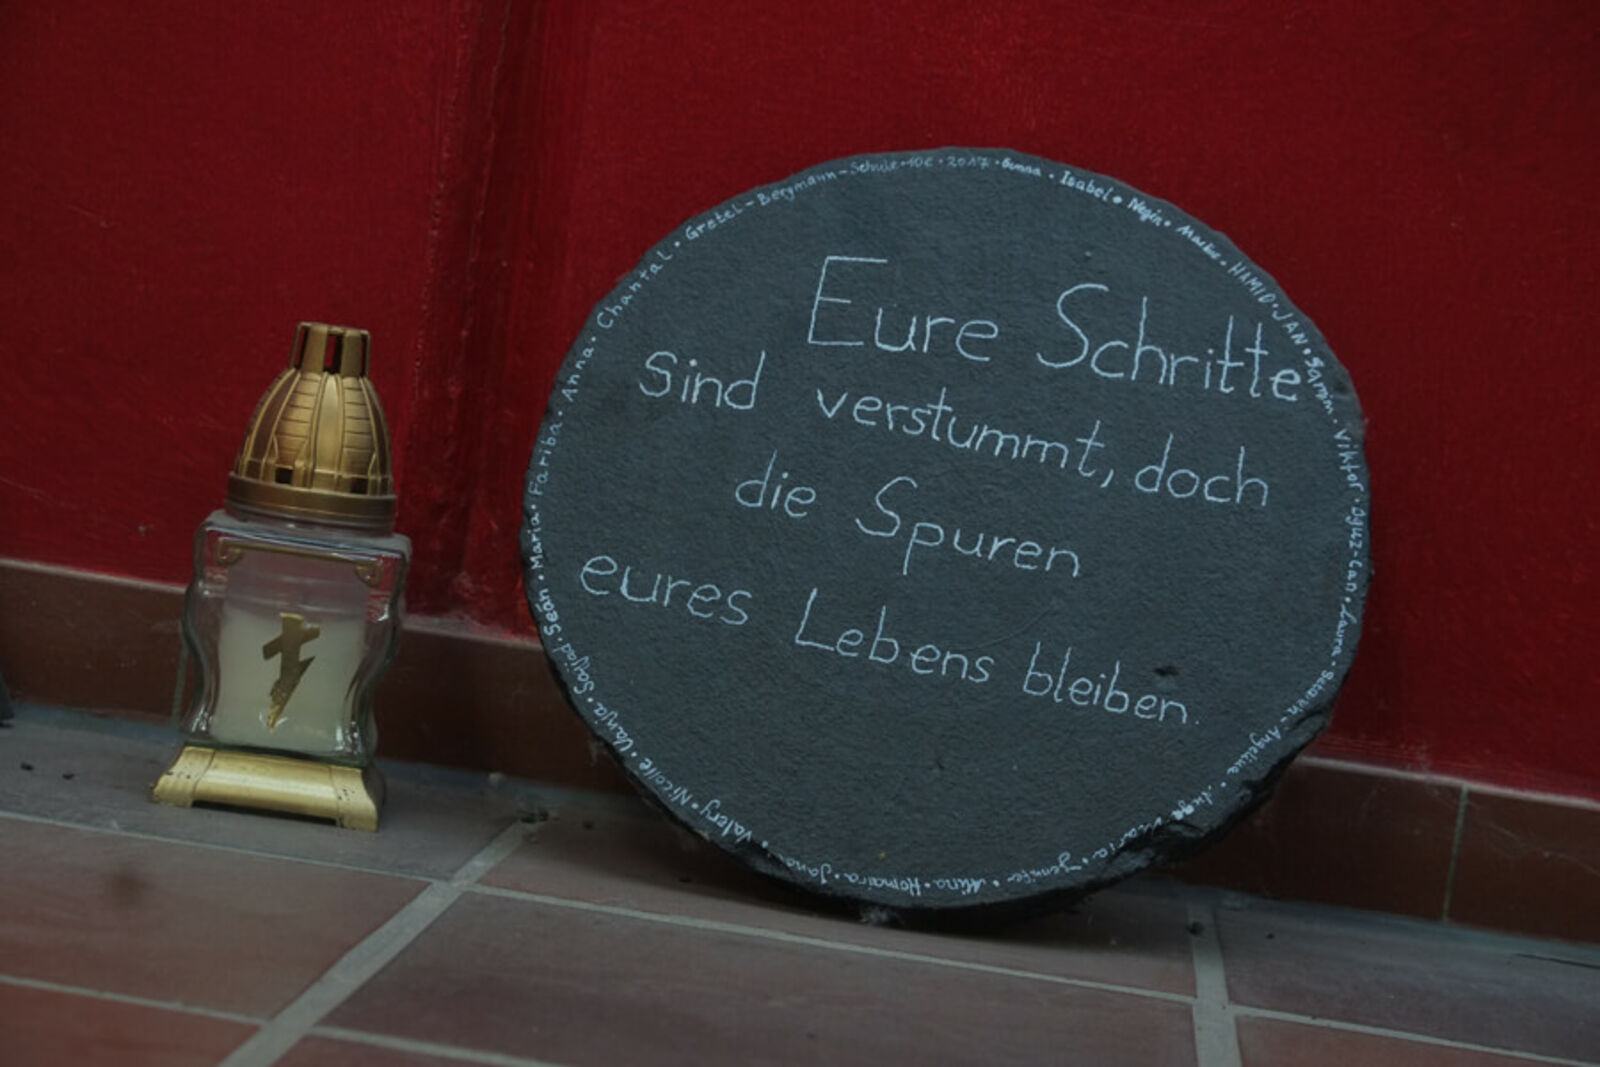 Eure Schritte
Sind verstummt, doch
die Spuren
eures Lebens bleiben.
Gretel-Bergmann-Schule • 10c • 2017 • • Isabel • Negin • Markus • HAMID • JAN • • Viktor • Oguz-Can • Laura • • Angelina • • Maria • Jennifer • Mina • Homaira • Jana • Valery • Nicolle • Vanja • Sajjad • Seán • Maria • Fariba • Anna • Chantal •